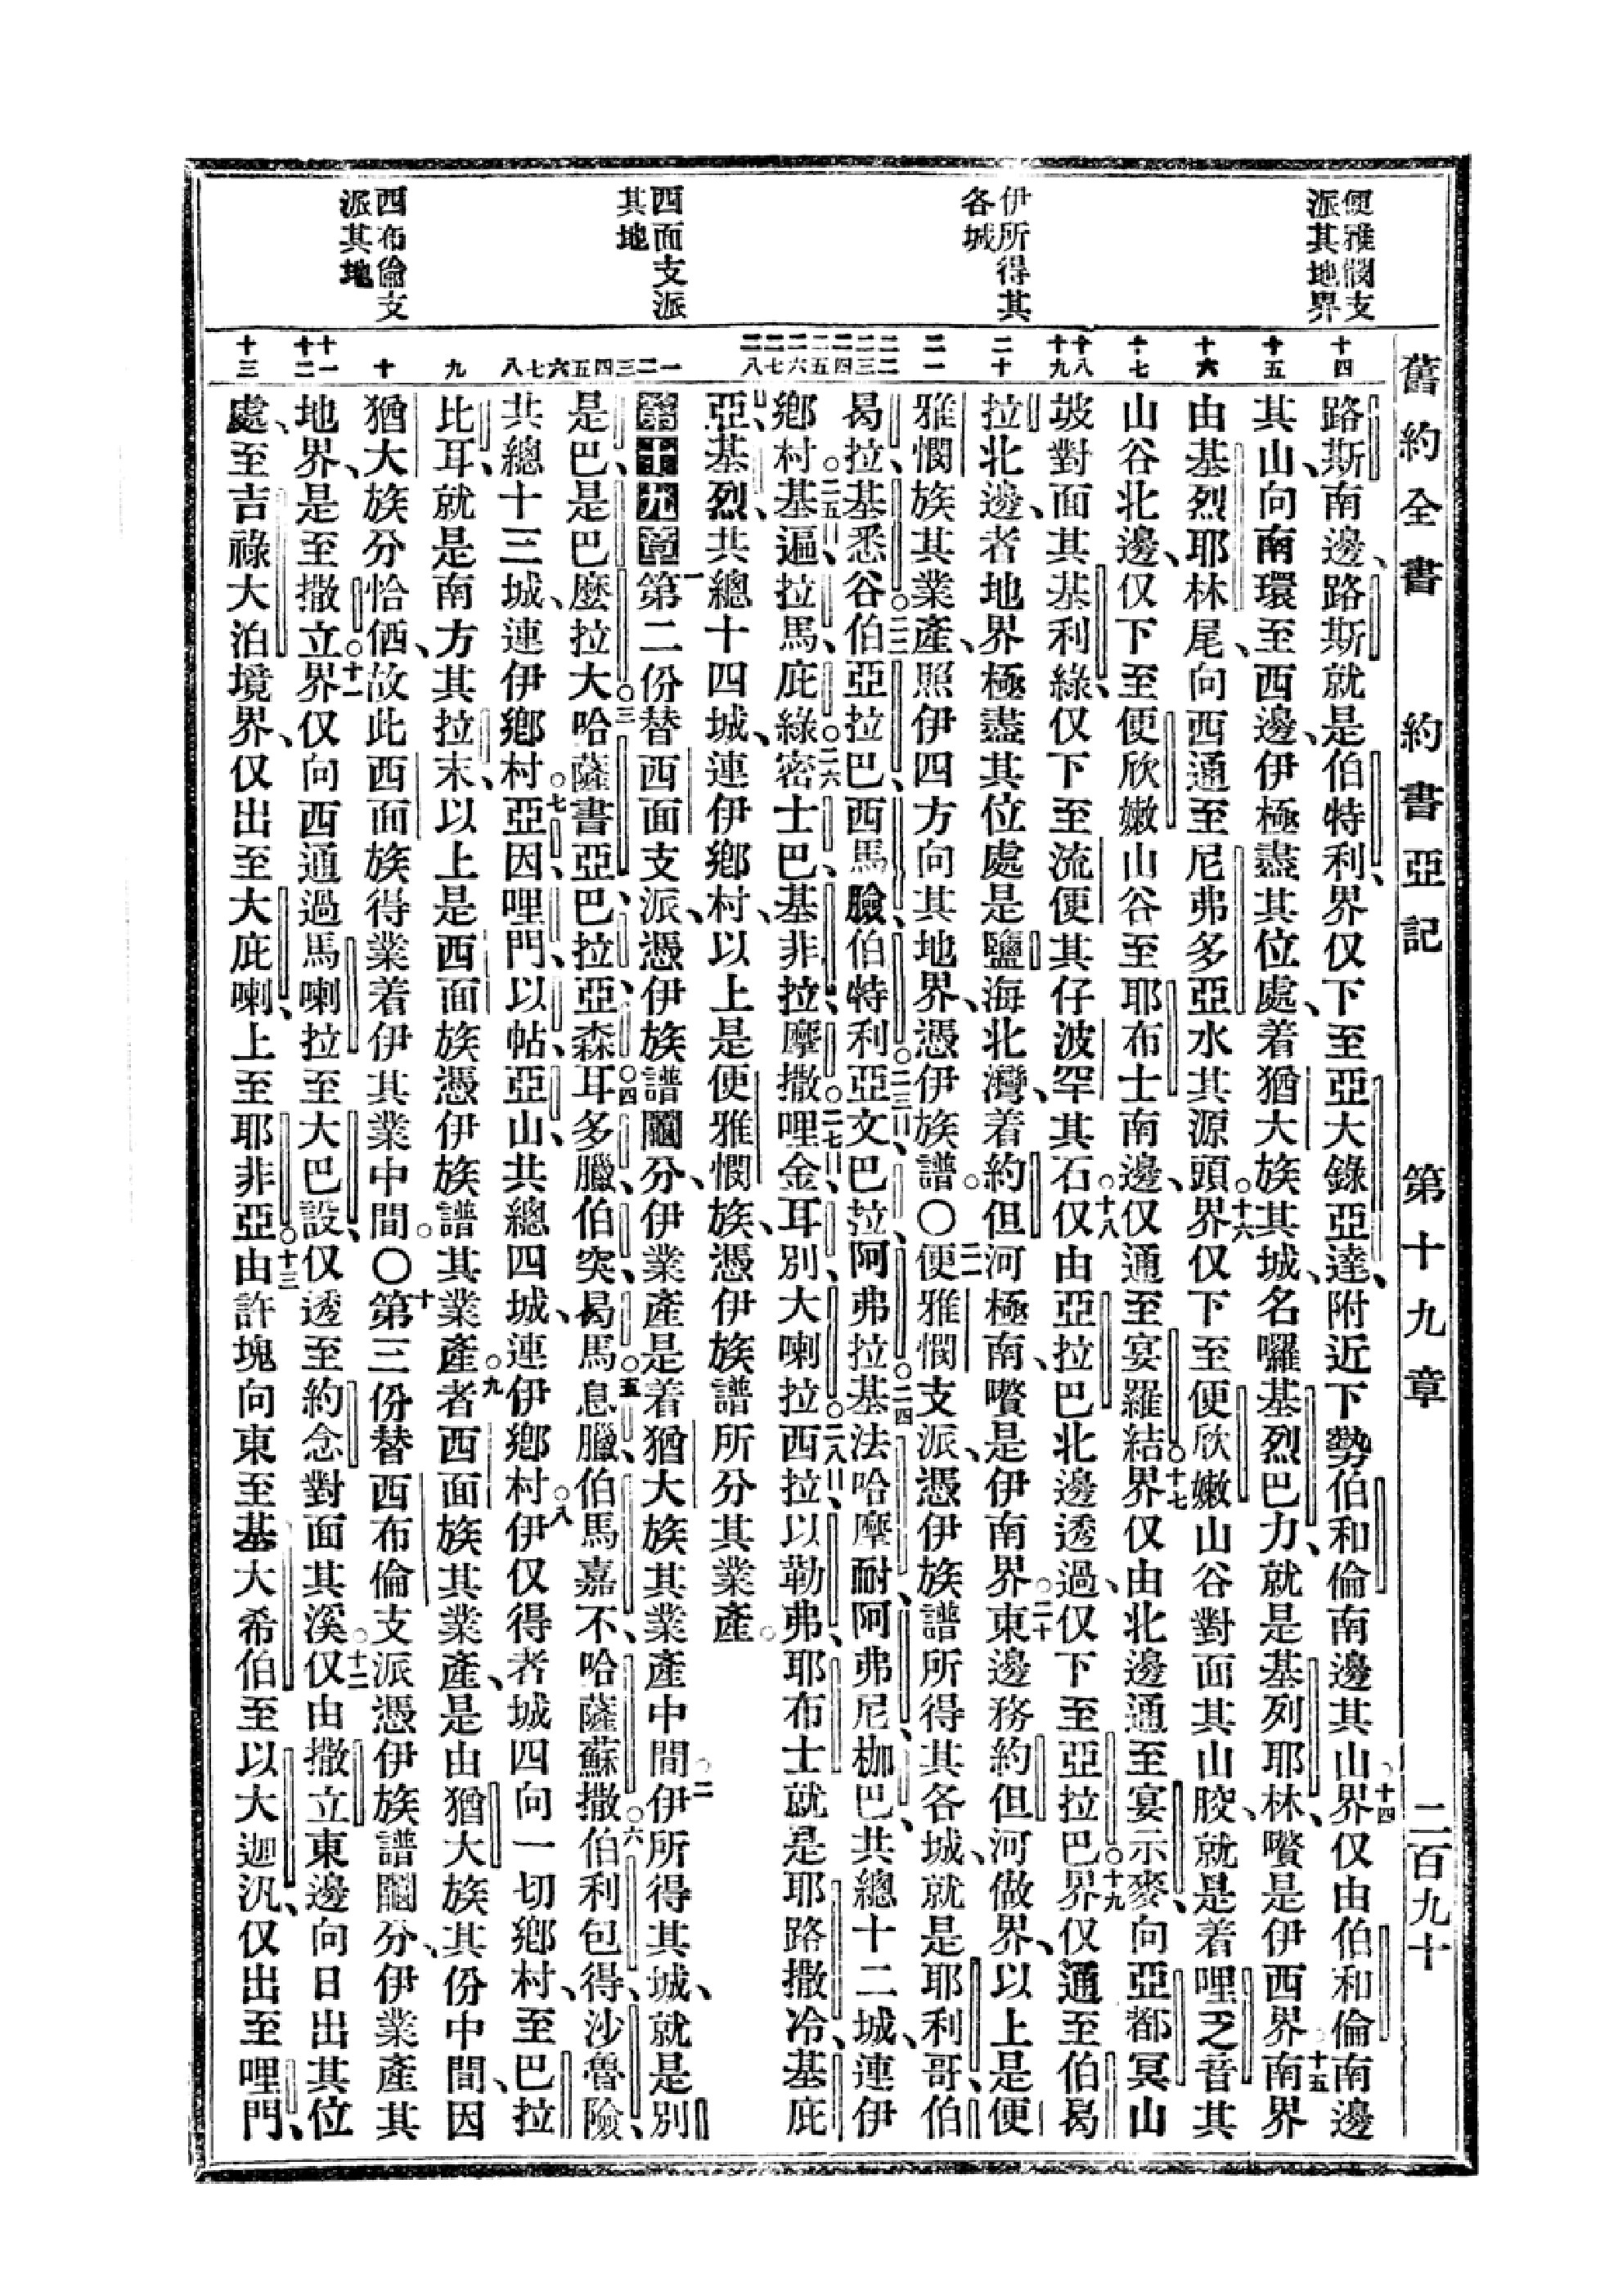 舊約全書 約書亞記 第十九章 二百九十
便雅憫支
派其地界
伊所得其
各城
西面支派
其地
西布倫支
派其地
十四 十五 十六 十七 十八 十九 二十 二一 二二 二三 二四 二五 二六 二七 二八 一 二 三 四 五 六 七 八 九 十 十一 十二 十三
路斯南邊、路斯就是伯特利、界仅下至亞大錄亞達、附近下勢伯和倫南邊其山、十四界仅由伯和倫南邊
其山、向南環至西邊、伊極盡其位處、着猶大族其城、名囉基烈巴力、就是基列耶林、嚽是伊西界、十五南界
由基烈耶林尾、向西通至尼弗多亞水其源頭、十六界仅下至便欣嫩山谷對面其山腔、就是着哩乏音其
山谷北邊、仅下至便欣嫩山谷、至耶布士南邊、仅通至宴羅結、十七界仅由北邊通至宴示麥、向亞都冥山
坡對面其基利綠、仅下至流便其仔波罕其石、十八仅由亞拉巴北邊透過、仅下至亞拉巴、十九界仅通至伯曷
拉北邊、者地界極盡其位處、是鹽海北灣、着約但河極南、嚽是伊南界、二十東邊務約但河做界、以上是便
雅憫族其業產、照伊四方向其地界、憑伊族譜。〇二一便雅憫支派、憑伊族譜所得其各城、就是耶利哥、伯
曷拉、基悉谷、二二伯亞拉巴、西馬臉、伯特利、二三亞文、巴拉、阿弗拉、二四基法哈摩耐、阿弗尼、枷巴、共總十二城、連伊
鄉村。二五基遍、拉馬、庇綠、二六密士巴、基非拉、摩撒、二七哩金、耳別、大喇拉、二八西拉、以勒弗、耶布士、就是耶路撒冷、基庇
亞、基烈、共總十四城、連伊鄉村、以上是便雅憫族、憑伊族譜所分其業產。
第十九章 一第二份替西面支派、憑伊族譜鬮分、伊業產是着猶大族其業產中間、二伊所得其城、就是別
是巴、是巴、麼拉大、三哈薩書亞、巴拉、亞森、四耳多臘、伯突、曷馬、五息臘、伯馬嘉不、哈薩蘇撒、六伯利包得、沙魯險、
共總十三城、連伊鄉村。七亞因、哩門、以帖、亞山、共總四城、連伊鄉村。八伊仅得者城四向一切鄉村、至巴拉
比耳、就是南方其拉末、以上是西面族憑伊族譜其業產。九者西面族其業產、是由猶大族其份中間、因
猶大族分恰㑚、故此西面族得業着伊其業中間。〇十第三份替西布倫支派、憑伊族譜鬮分、伊業產其
地界、是至撒立、十一界仅向西通過馬喇拉、至大巴設、仅透至約念對面其溪、十二仅由撒立東邊向日出其位
處、至吉祿大泊境界、仅出至大庇喇、上至耶非亞、十三由許塊向東至基大希伯、至以大迦汎、仅出至哩門、